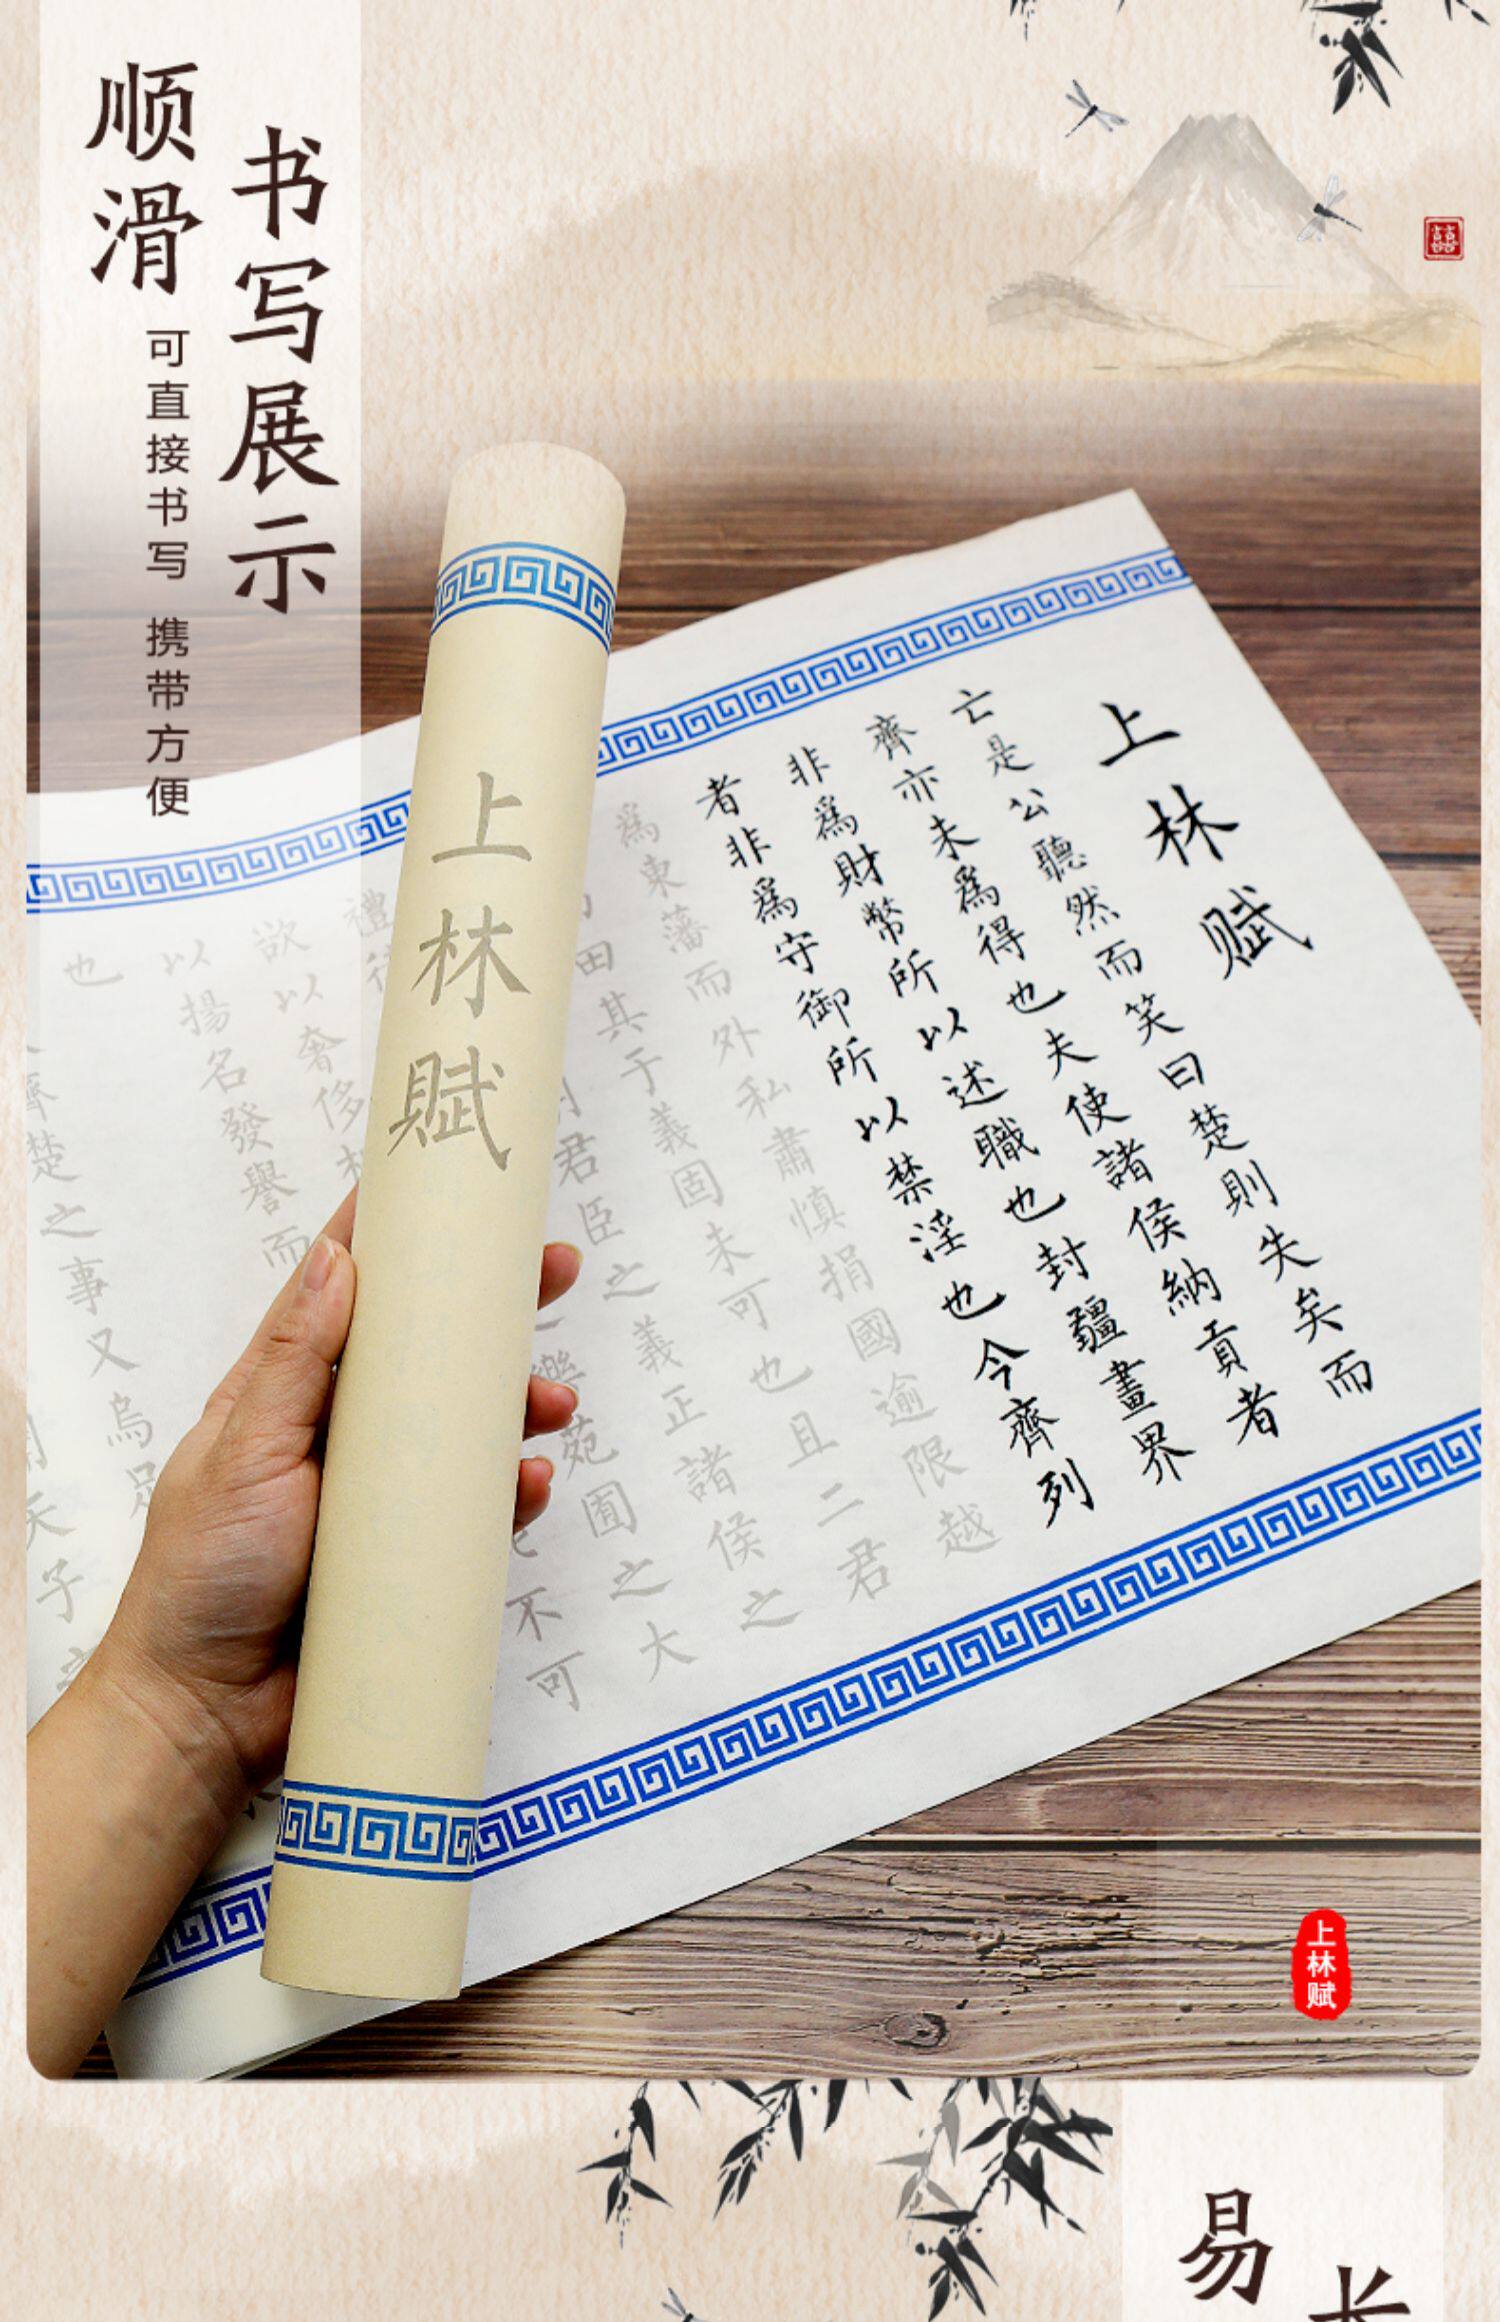 书写展示
顺滑
可直接书写 携带方便
上林赋
亡是公聽然而笑曰楚則失矣而
齊亦未爲得也夫使諸侯納貢者
非爲財幣所以述職也封疆畫界
者非爲守御所以禁淫也今齊列
爲東藩而外私肅慎捐國逾限越
田其于義固未可也且二君
君臣之義正諸侯之
苑囿之大
不可
欲以奢侈
以揚名發譽而
也
齊楚之事又烏足
天子
上林賦
上林赋
易